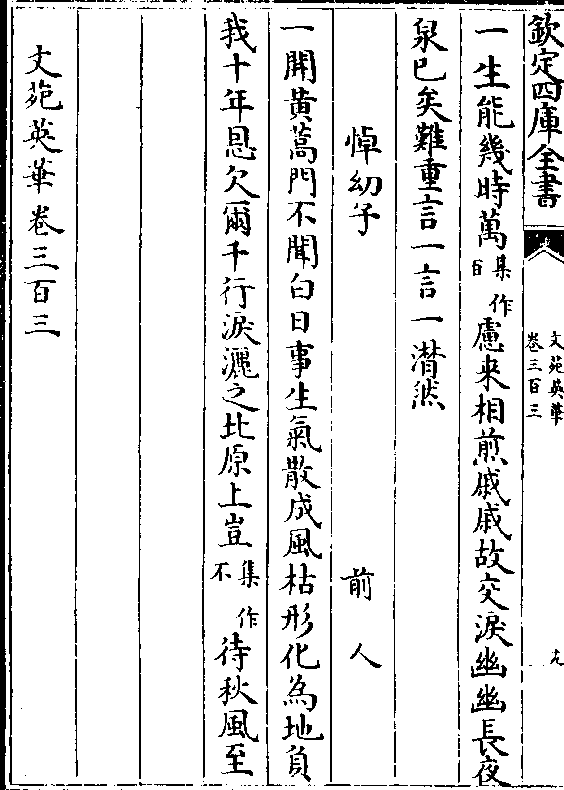 欽定四庫全書
文苑英華
卷三百三
十九
一生能幾時萬集作百慮来相煎戚戚故交淚幽幽長夜
泉已矣難重言一言一潸然
悼幼子 前人
一開黄蒿門不聞白日事生氣散成風枯形化為地負
我十年恩欠爾千行淚灑之北原上豈集作不待秋風至
文苑英華卷三百三